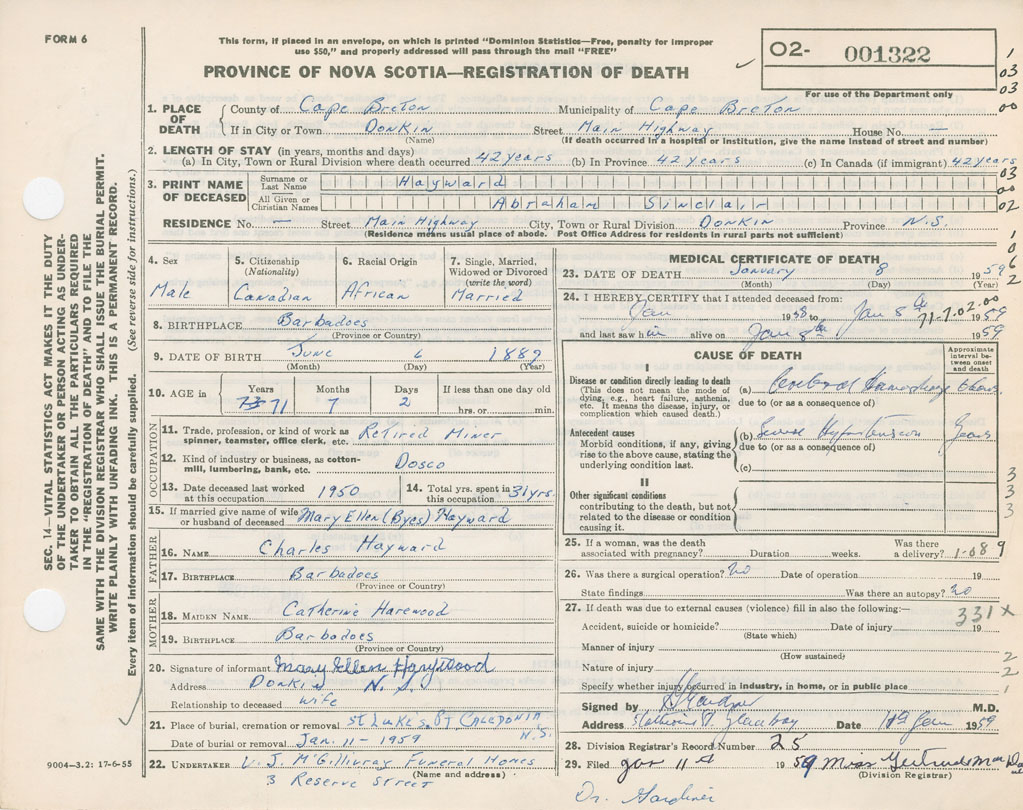 FORM 6
This form, if placed in an envelope, on which is printed "Dominion Statistics—Free, penalty for improper
use $50," and properly addressed will pass through the mail "FREE"
PROVINCE OF NOVA SCOTIA—REGISTRATION OF DEATH
O2- 001322
For use of the Department only
1
03
03
00
1. PLACE OF DEATH
County of Cape Breton Municipality of Cape Breton
If in City or Town Donkin Street Main Highway House No. —
(Name) (If death occurred in a hospital or institution, give the name instead of street and number)
2. LENGTH OF STAY (in years, months and days)
(a) In City, Town or Rural Division where death occurred 42 years (b) In Province 42 years (c) In Canada (if immigrant) 42 years
3. PRINT NAME OF DECEASED
Surname or Last Name Hayward
All Given or Christian Names Abraham Sinclair
03
00
02
RESIDENCE No. — Street Main Highway City, Town or Rural Division Donkin Province N.S.
(Residence means usual place of abode. Post Office Address for residents in rural parts not sufficient)
4. Sex
Male
5. Citizenship
(Nationality)
Canadian
6. Racial Origin
African
7. Single, Married,
Widowed or Divorced
(write the word)
Married
8. BIRTHPLACE Barbadoes
(Province or Country)
9. DATE OF BIRTH June 6 1887
(Month) (Day) (Year)
10. AGE in
Years Months Days If less than one day old
71 7 2 hrs. or min.
OCCUPATION
11. Trade, profession, or kind of work as
spinner, teamster, office clerk, etc. Retired Miner
12. Kind of industry or business, as cotton-
mill, lumbering, bank, etc. Dosco
13. Date deceased last worked
at this occupation 1950
14. Total yrs. spent in
this occupation 31 yrs.
15. If married give name of wife
or husband of deceased Mary Ellen (Byes) Hayward
FATHER
16. NAME Charles Hayward
17. BIRTHPLACE Barbadoes
(Province or Country)
MOTHER
18. MAIDEN NAME Catherine Harewood
19. BIRTHPLACE Barbadoes
(Province or Country)
20. Signature of informant Mary Ellen
Address Donkin N.S.
Relationship to deceased wife
21. Place of burial, cremation or removal St Lukes, Pt Caledonia
N.S.
Date of burial or removal Jan. 11 - 1959
22. UNDERTAKER V. J. McGillivray Funeral Homes
(Name and address)
3 Reserve Street
MEDICAL CERTIFICATE OF DEATH
1
0
6
2
23. DATE OF DEATH January 8 1959
(Month) (Day) (Year)
24. I HEREBY CERTIFY that I attended deceased from:
Jan 1958 to Jan 8th 1959
71-7.02-00
and last saw him alive on Jan 8th 1959
CAUSE OF DEATH
Approximate
interval be-
tween onset
and death
I
Disease or condition directly leading to death
(This does not mean the mode of
dying, e.g., heart failure, asthenia,
etc. It means the disease, injury, or
complication which caused death.)
(a) Cerebral Hemorrhage
due to (or as a consequence of)
Antecedent causes
Morbid conditions, if any, giving
rise to the above cause, stating the
underlying condition last.
(b) Severe Hypertension Years
due to (or as a consequence of)
(c)
II
Other significant conditions
contributing to the death, but not
related to the disease or condition
causing it.
3
3
3
3
25. If a woman, was the death
associated with pregnancy? Duration weeks. Was there
a delivery?
1-089
26. Was there a surgical operation? No Date of operation 19
State findings Was there an autopsy? No
27. If death was due to external causes (violence) fill in also the following:—
331X
Accident, suicide or homicide? Date of injury 19
(State which)
Manner of injury
(How sustained)
Nature of injury
2
2
1
Specify whether injury occurred in industry, in home, or in public place
Signed by M.D.
Address Glace Bay Date Jan 1959
28. Division Registrar's Record Number 25
29. Filed Jan 11th 1959 Miss Gertrude
(Division Registrar)
Dr. Gardiner
SEC. 14—VITAL STATISTICS ACT MAKES IT THE DUTY
OF THE UNDERTAKER OR PERSON ACTING AS UNDER-
TAKER TO OBTAIN ALL THE PARTICULARS REQUIRED
IN THE "REGISTRATION OF DEATH" AND TO FILE THE
SAME WITH THE DIVISION REGISTRAR WHO SHALL ISSUE THE BURIAL PERMIT.
WRITE PLAINLY WITH UNFADING INK. THIS IS A PERMANENT RECORD.
Every item of information should be carefully supplied. (See reverse side for instructions.)
9004—3.2: 17-6-55